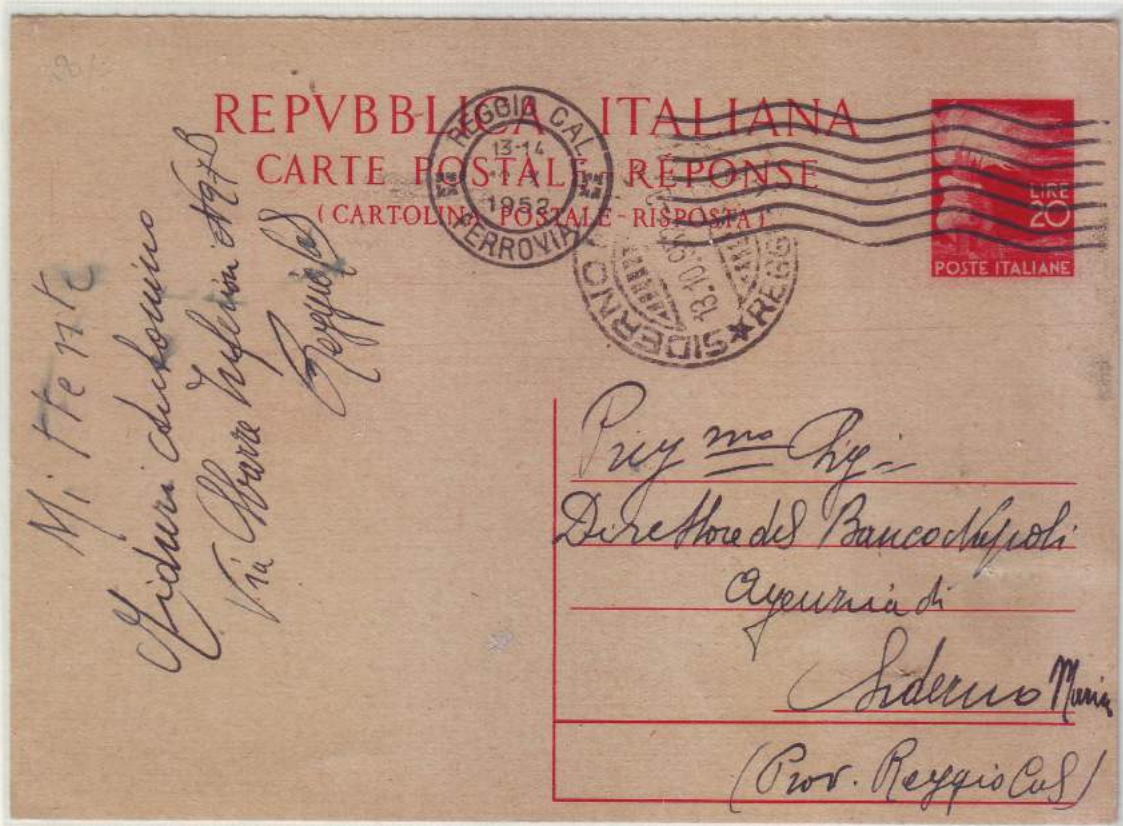 REPVBBLICA ITALIANA
CARTE POSTALE - RÉPONSE
(CARTOLINA POSTALE - RISPOSTA)
REGGIO CAL.
13-14
1952
FERROVIA
SIDERNO
13.10.
REGG
LIRE
20
POSTE ITALIANE
Mittente
Antonino
Via Sbarre Inferiori N 27 B
Reggio Cal
Preg mo Sig
Direttore del Banco Napoli
Agenzia di
Siderno Marina
(Prov. Reggio Cal)